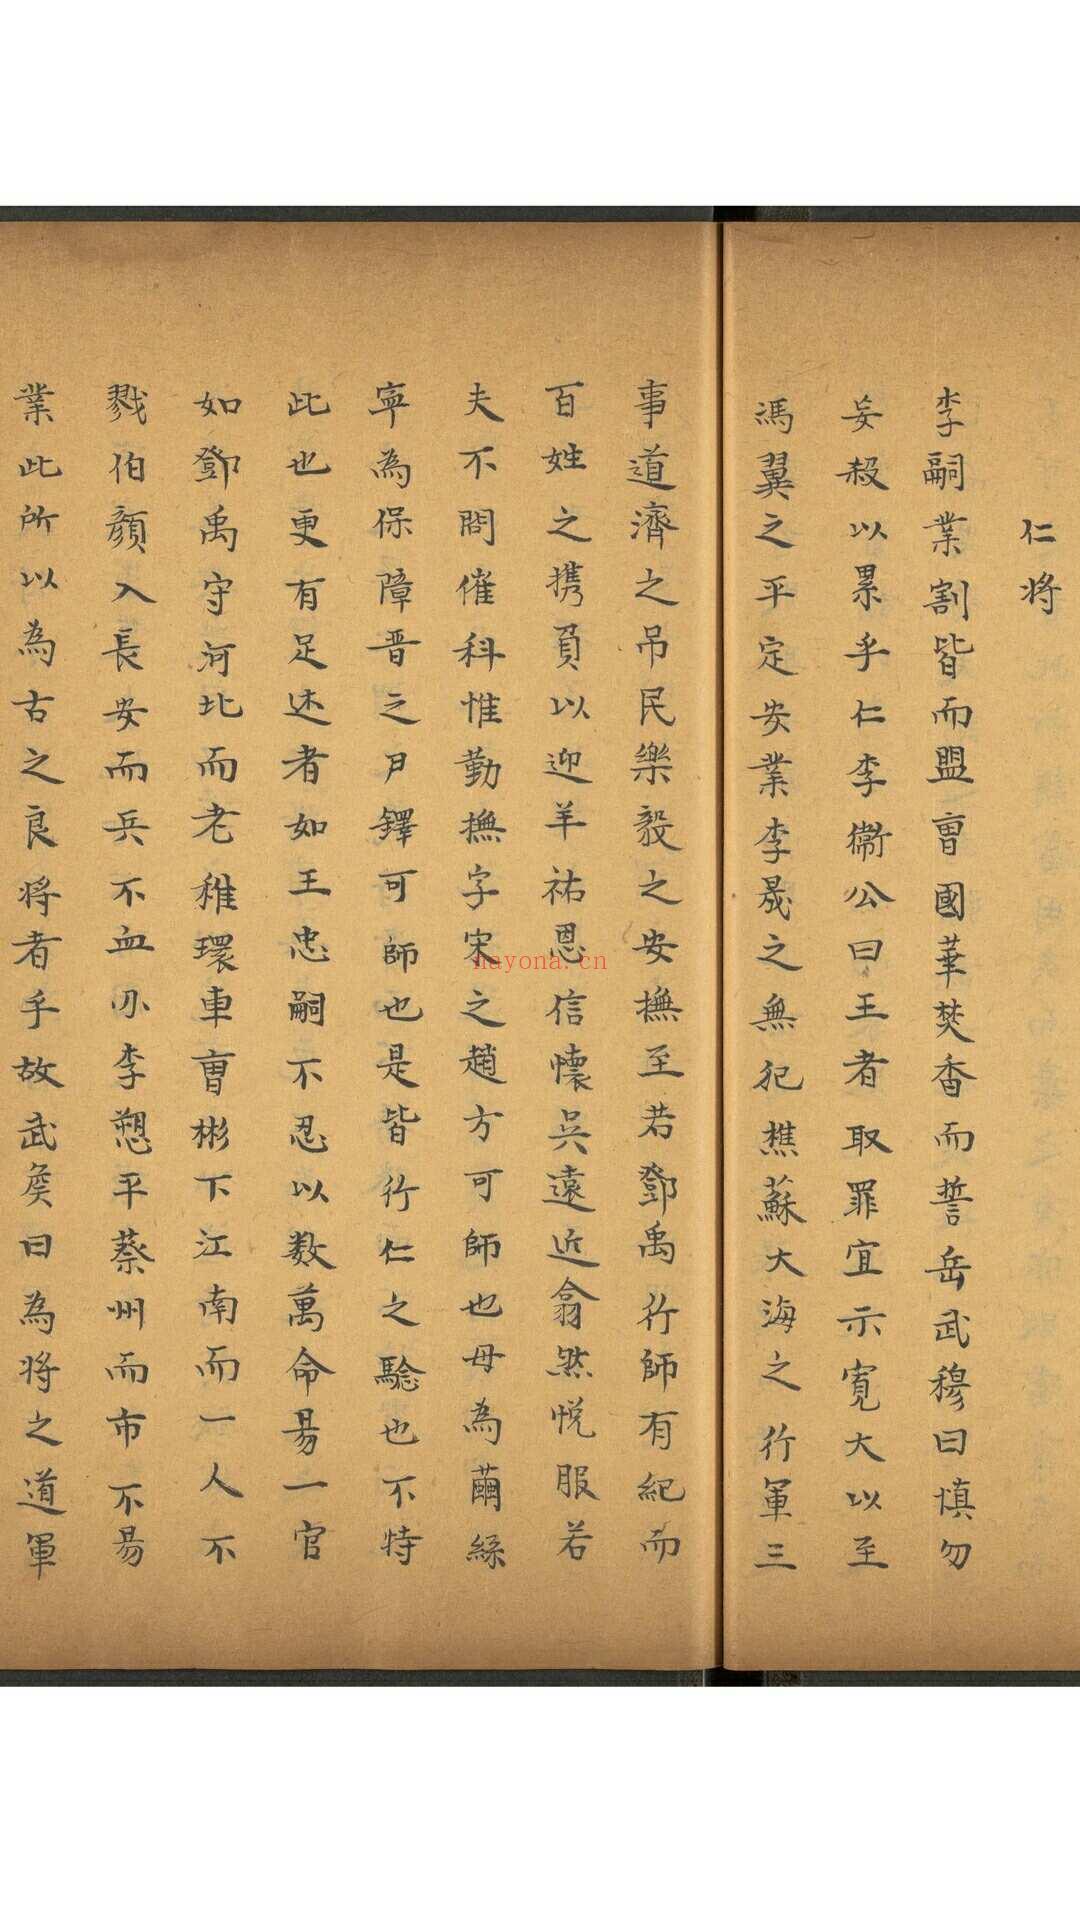 仁将
李嗣業割眥而盟曺國華焚香而誓岳武穆曰慎勿
妄殺以累乎仁李衛公曰王者取罪宜示寬大以至
馮翼之平定安業李晟之無犯樵蘇大海之行軍三
事道濟之吊民樂毅之安撫至若鄧禹行師有紀而
百姓之携負以迎羊祜恩信懷吳遠近翕然悅服若
夫不問催科惟勤撫字宋之趙方可師也毋為繭絲
寧為保障晋之尹鐸可師也是皆行仁之驗也不特
此也更有足述者如王忠嗣不忍以数萬命易一官
如鄧禹守河北而老稚環車曺彬下江南而一人不
戮伯顔入長安而兵不血刃李愬平蔡州而市不易
業此所以為古之良将者乎故武矦曰為将之道軍
nayona.cn